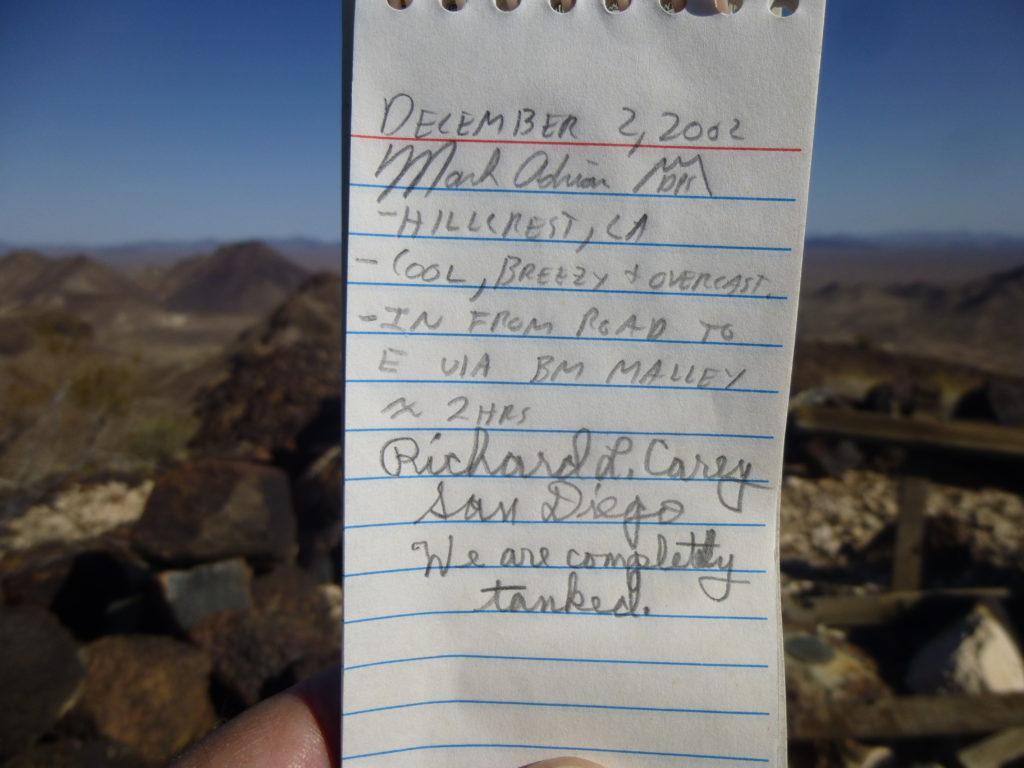 DECEMBER 2, 2002
Mark Adrian DPS
-HILLCREST, CA
- COOL, BREEZY + OVERCAST.
-IN FROM ROAD TO
E VIA BM MALLEY
≈ 2 HRS
Richard L. Carey
San Diego
We are completly
tanked.